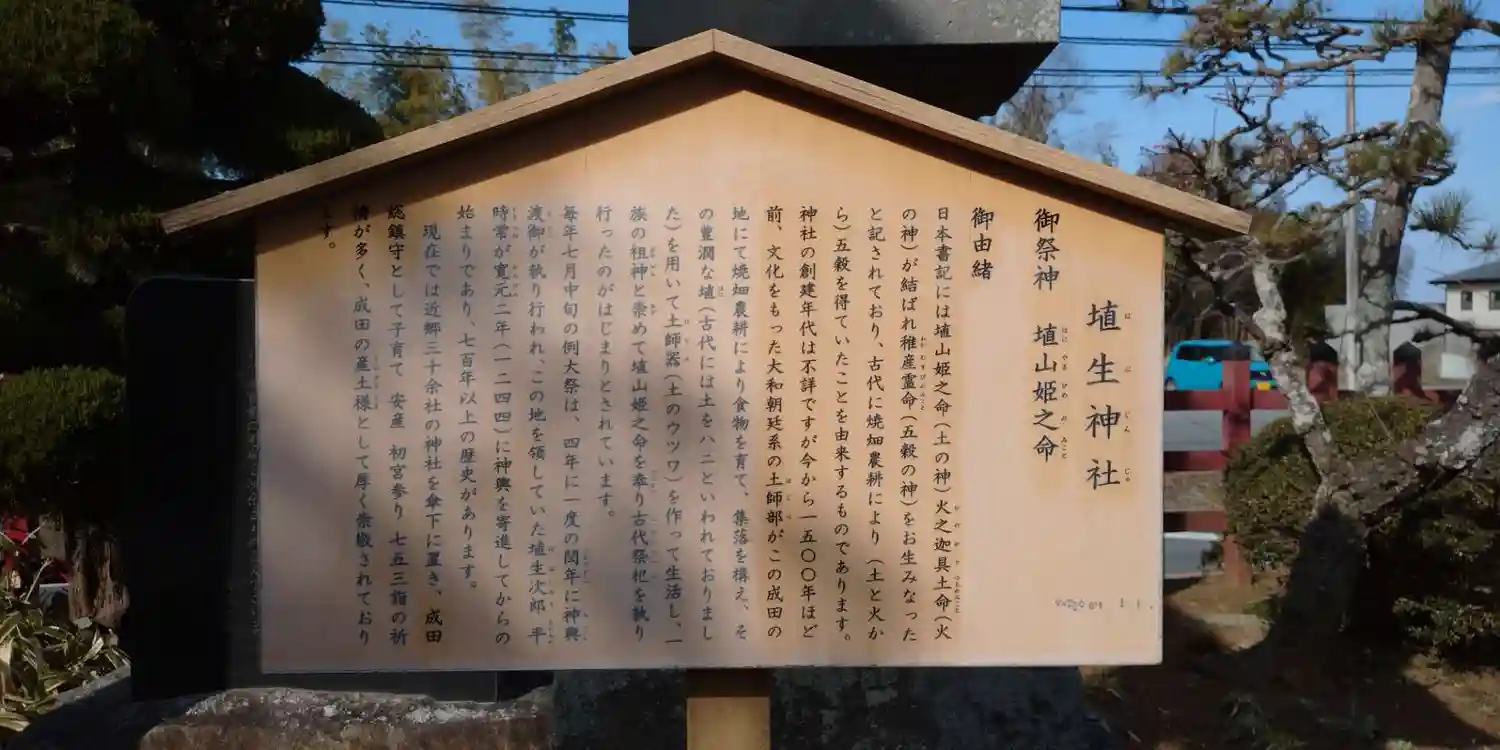 埴生神社
御祭神 埴山姫之命
御由緒
日本書記には埴山姫之命(土の神)火之迦具土命(火
の神)が結ばれ稚産霊命(五穀の神)をお生みなった
と記されており、古代に焼畑農耕により(土と火か
ら)五穀を得ていたことを由来するものであります。
神社の創建年代は不詳ですが今から一五〇〇年ほど
前、文化をもった大和朝廷系の土師部がこの成田の
地にて焼畑農耕により食物を育て、集落を構え、そ
の豊潤な埴(古代には土をハニといわれておりまし
た)を用いて土師器(土のウツワ)を作って生活し、一
族の祖神と崇めて埴山姫之命を奉り古代祭祀を執り
行ったのがはじまりとされています。
毎年七月中旬の例大祭は、四年に一度の閏年に神輿
渡御が執り行われ、この地を領していた埴生次郎 平
時常が寛元二年(一二四四)に神輿を寄進してからの
始まりであり、七百年以上の歴史があります。
現在では近郷三十余社の神社を傘下に置き、成田
総鎮守として子育て 安産 初宮参り 七五三詣の祈
祷が多く、成田の産土様として厚く崇敬されており
ます。